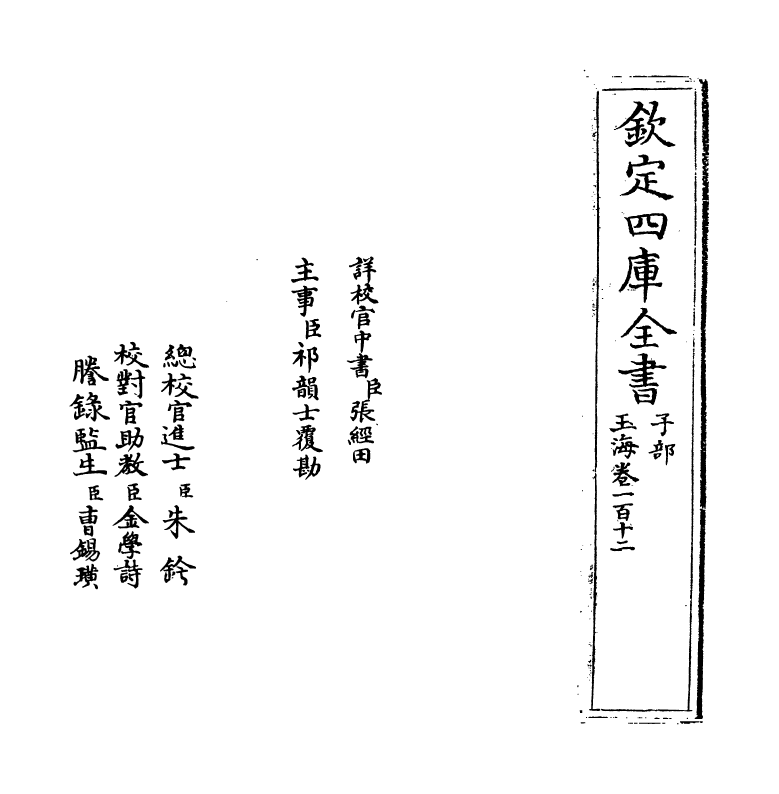 欽定四庫全書
子部
玉海卷一百十二
詳校官中書臣張經田
主事臣祁韻士覆勘
總校官進士臣朱鈐
校對官助教臣金學詩
謄錄監生臣曹錫璜